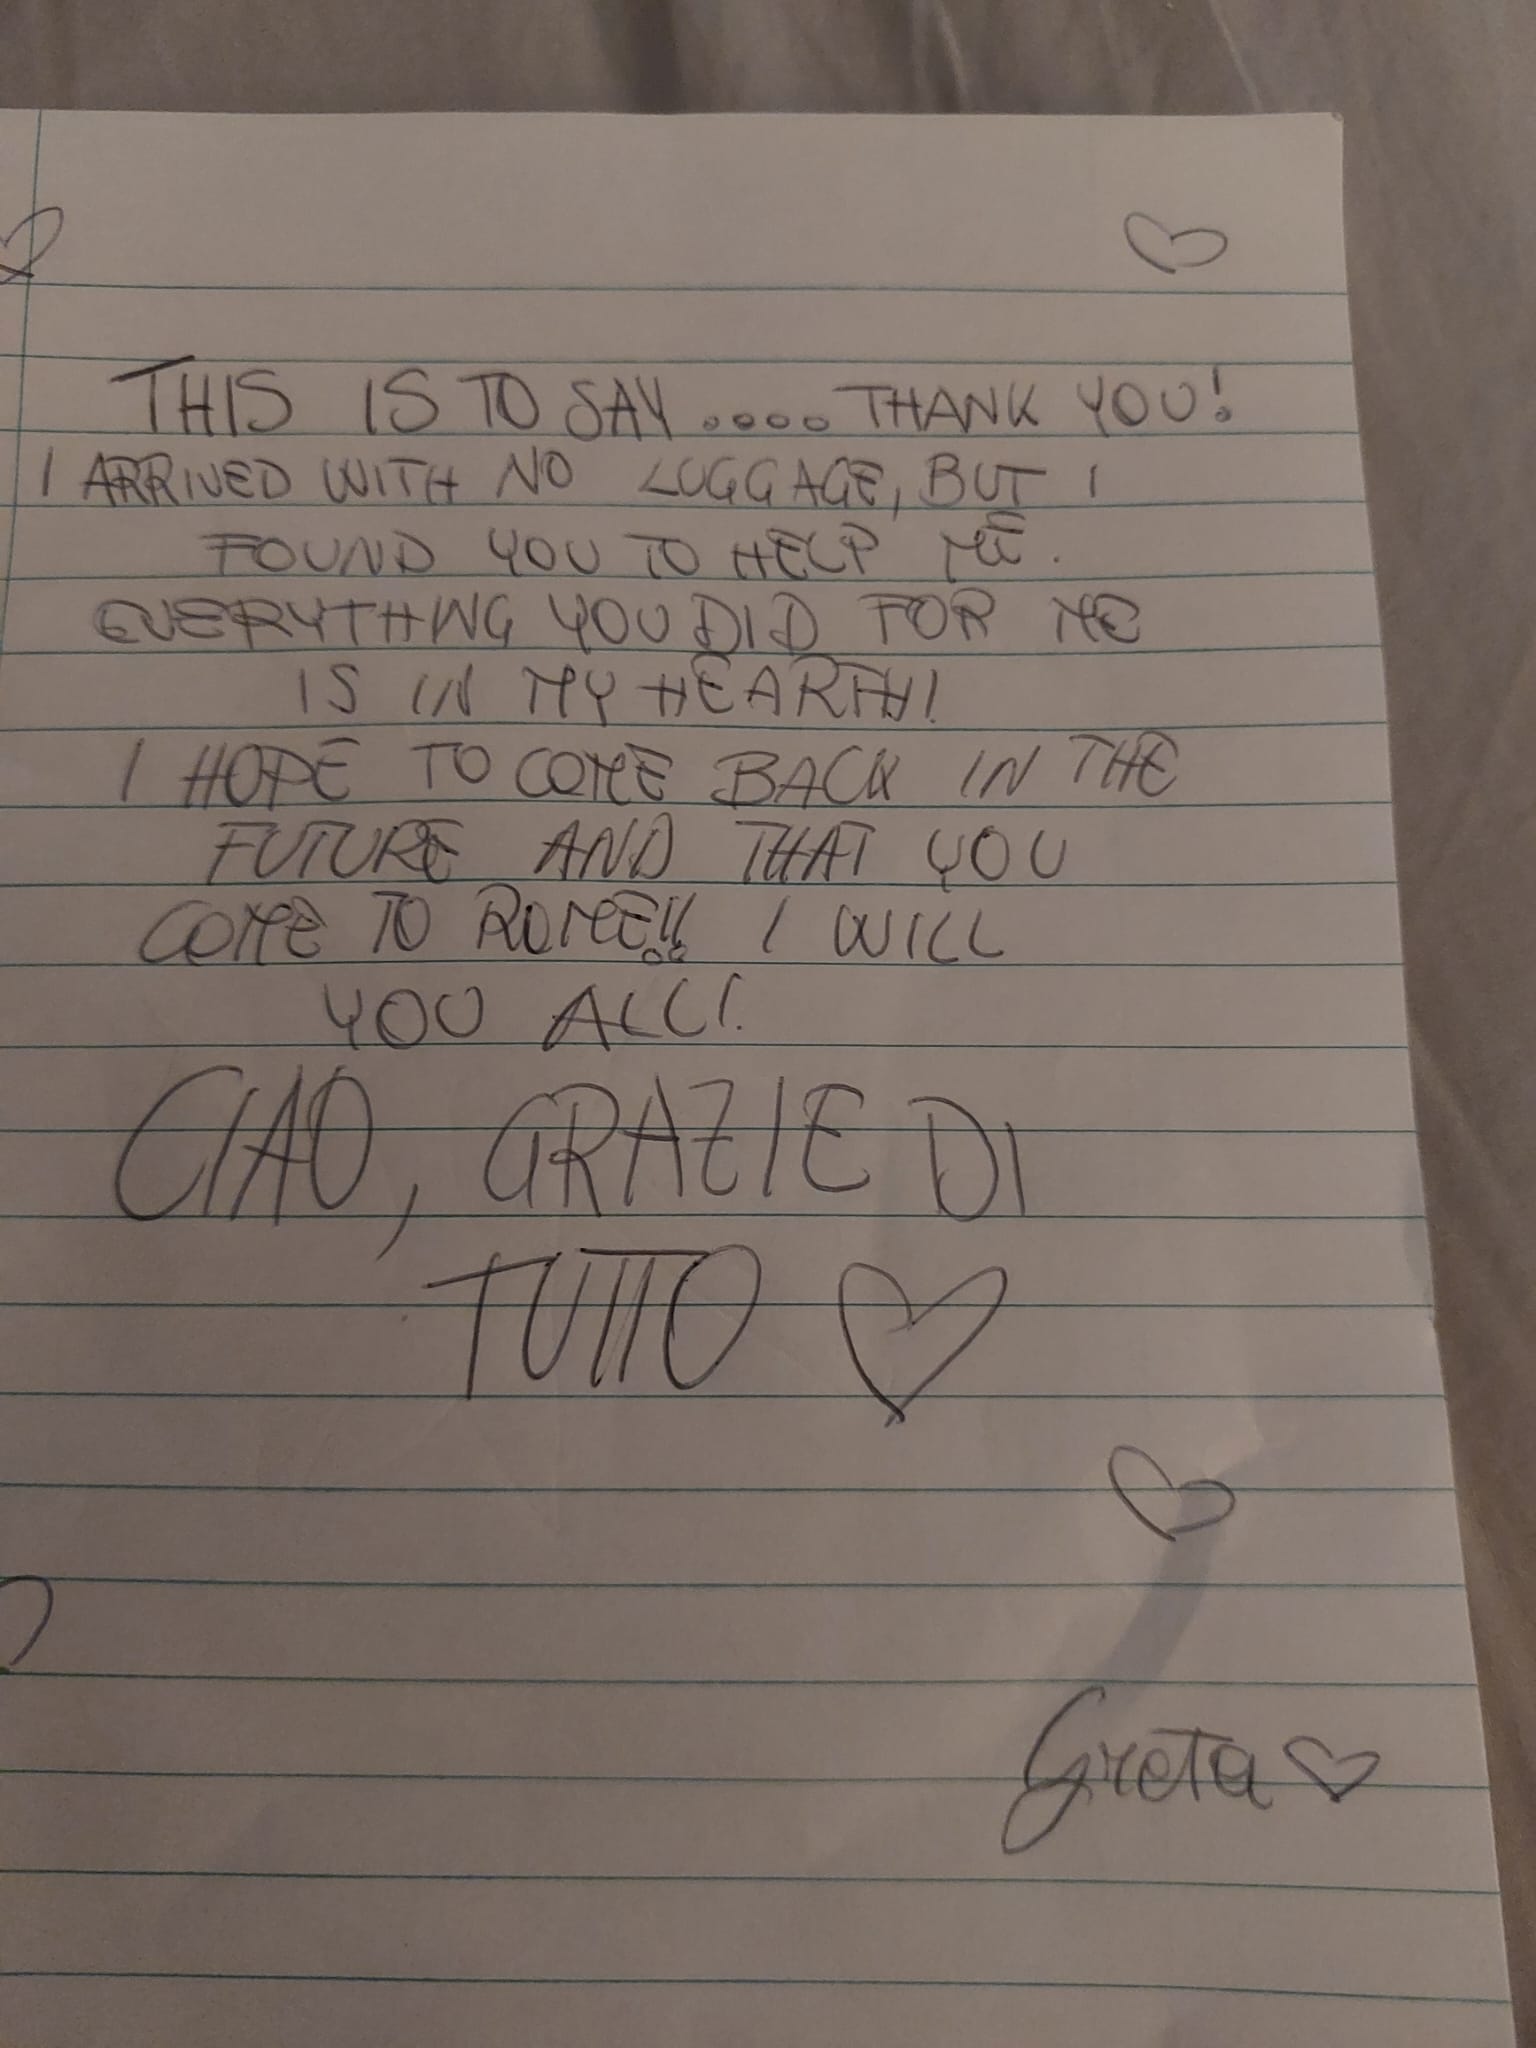 THIS IS TO SAY .... THANK YOU!
I ARRIVED WITH NO LUGGAGE, BUT I
FOUND YOU TO HELP ME.
EVERYTHING YOU DID FOR ME
IS IN MY HEARTH!
I HOPE TO COME BACK IN THE
FUTURE AND THAT YOU
COME TO ROME!! I WILL
YOU ALL!
CIAO, GRAZIE DI
TUTTO
Greta